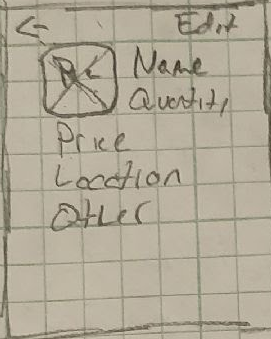 Edit
Name
Quantity
Price
Location
Other